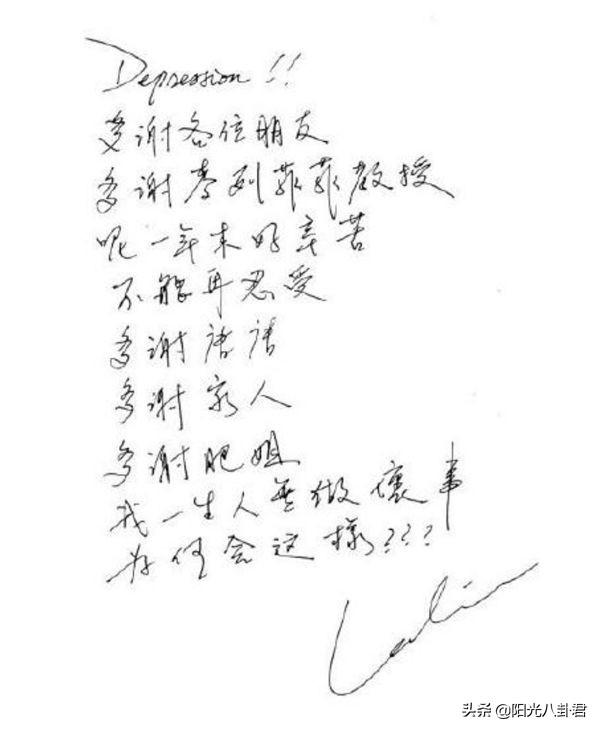 Depression!!
多谢各位朋友
多谢麥列菲菲教授
呢一年来好辛苦
不能再忍受
多谢唐唐
多谢家人
多谢肥姐
我一生人無做壞事
为何会这樣???
Leslie
头条 @阳光八卦君